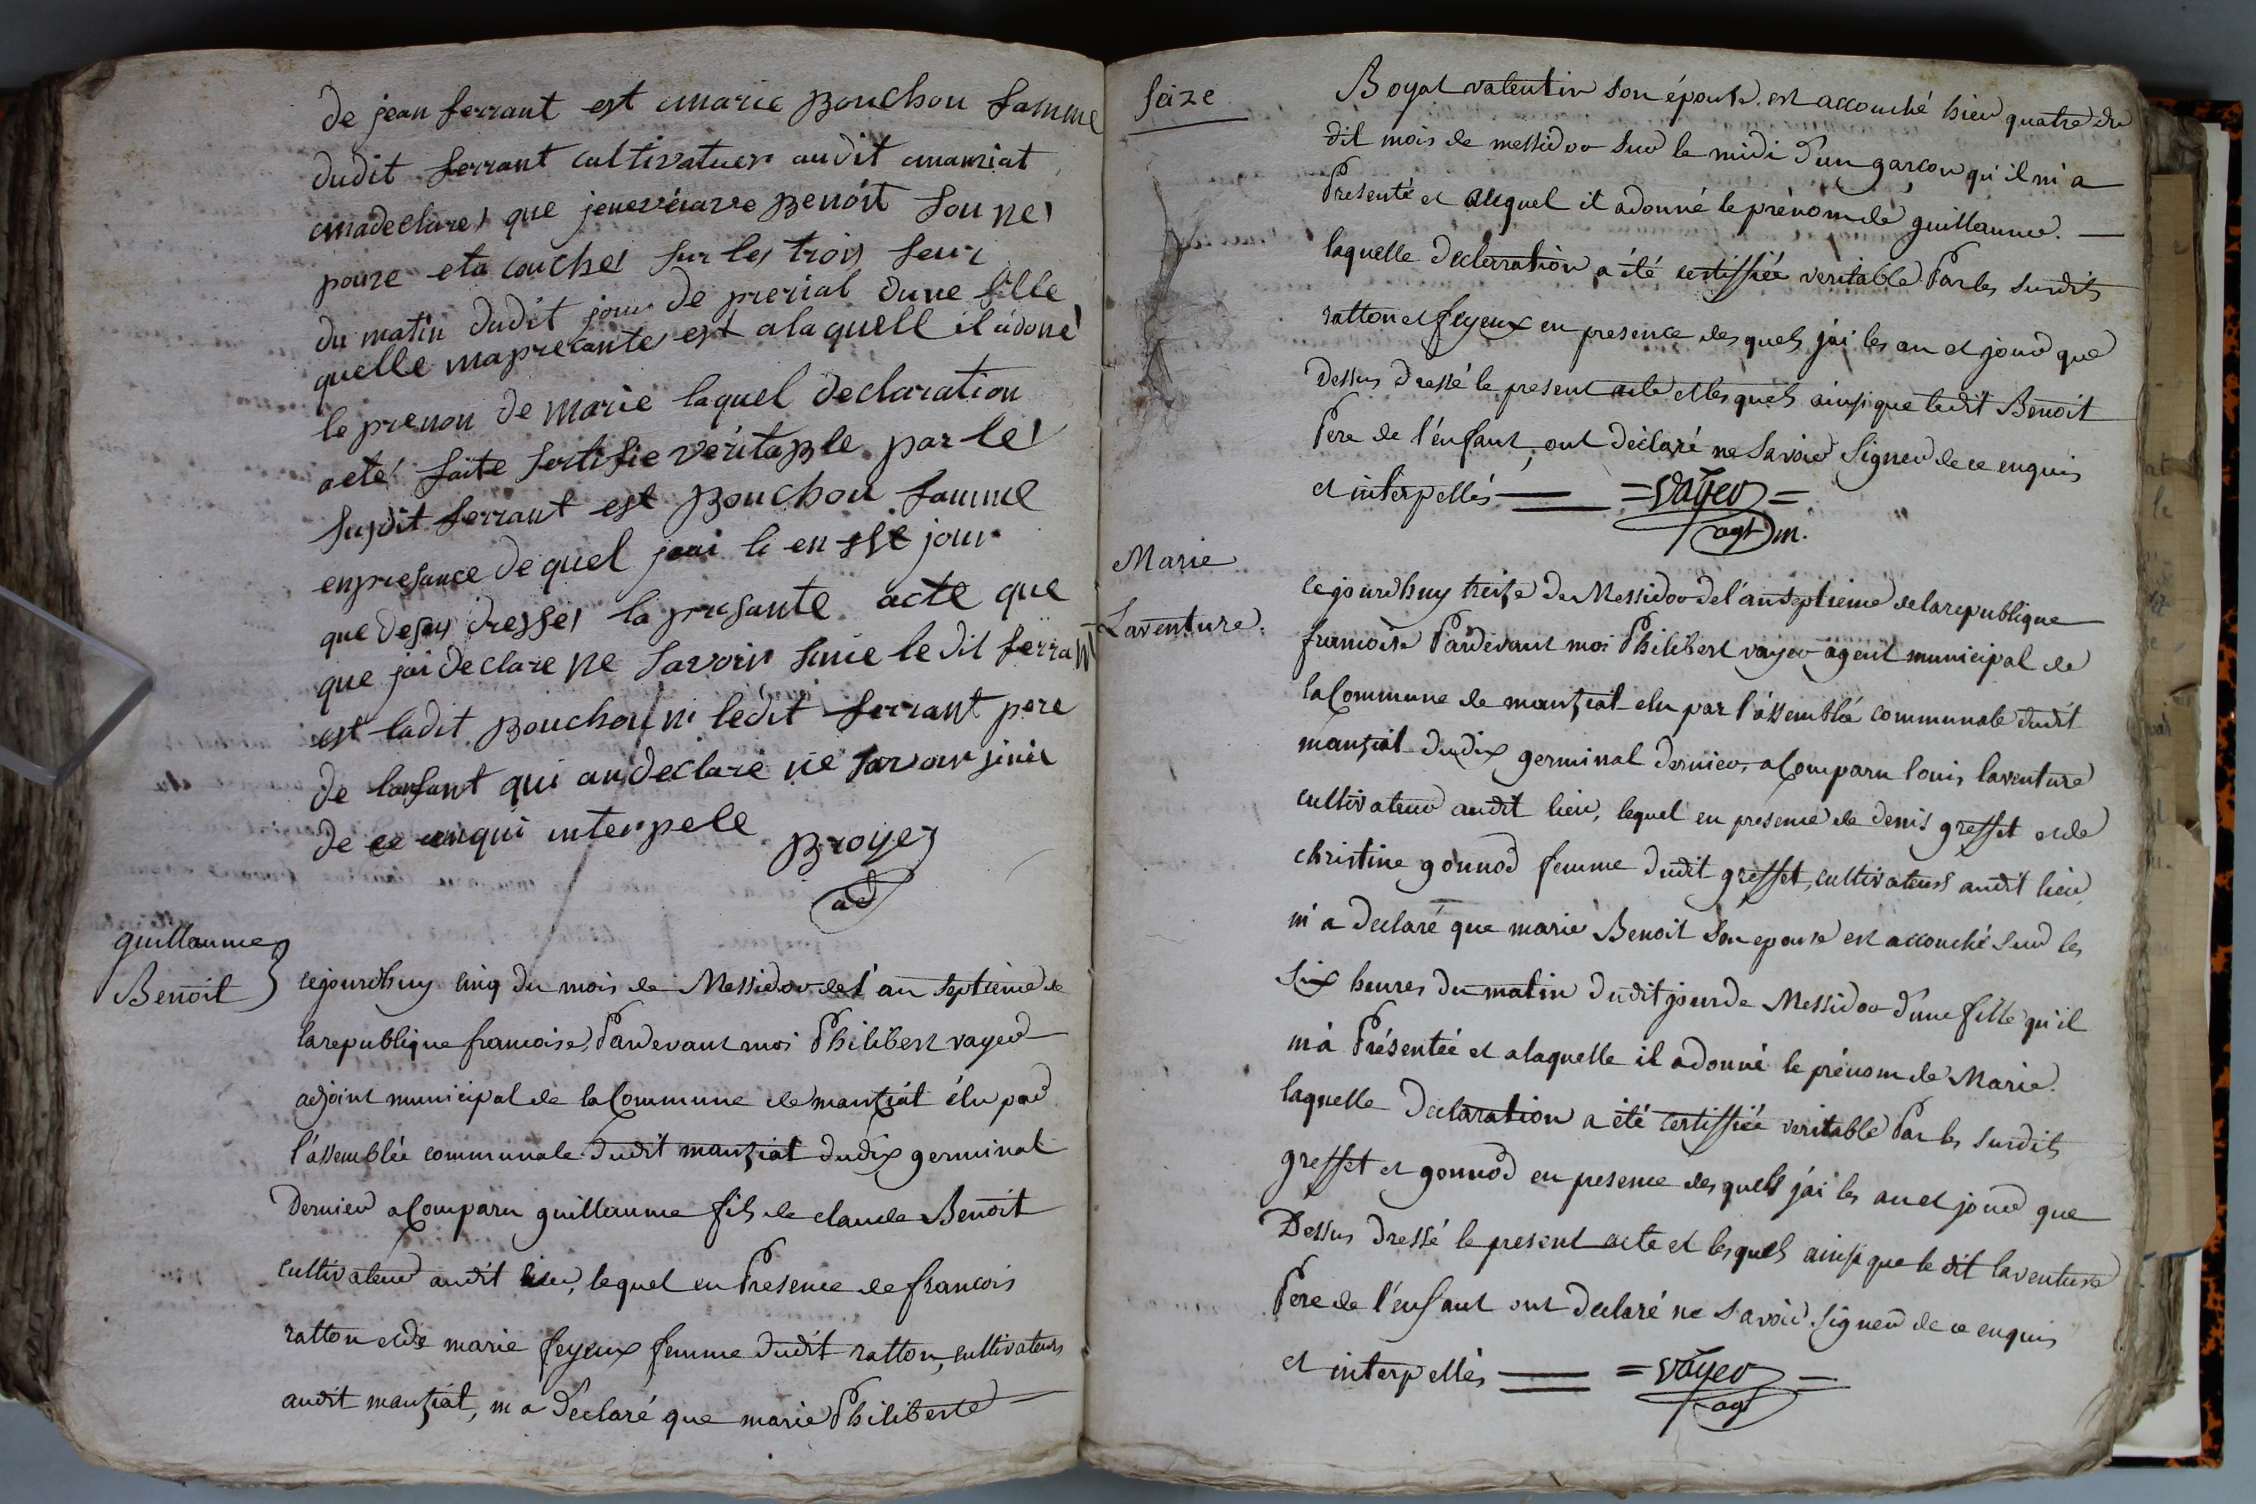 de jean ferrant est marie Bouchou famme
dudit ferrant cultivatuer audit manziat
madeclarer que jenevieaive Benoit son ne
pouze eta coucher sur les trois heur
du matin dudit jour de prerial dune fille
quelle mapresante est alaquell il a doné
le prenon de marie laquel declaration
a eté faite sertifie veritaBle par les
susdit ferrant est Bouchou famme
enpresance dequel jai le en ele jour
que desus dresser la presante acte que
que jai declare ne savoir sinie le dit ferrant
est ladit Bouchou ni ledit ferrant pere
de lanfant qui an declare ne savoir sinier
de ce enqui interpele
Broyer
ad
guillaume
Benoit
cejourdhuy cinq du mois de Messidor de l'an septieme de
la republique francoise, Pardevant moi Philibert voyer
adjoint municipal de la Commune de manziat élu par
l'assemblée communale dudit manziat du dix germinal
Dernier a Comparu guillaume fils de claude Benoit
cultivateur audit lieu, lequel en Presence de francois
ratton et de marie feyeux femme dudit ratton, cultivateurs
audit manziat, m'a declaré que marie Philiberte
seize
Boyat valentin son épouse est accouché hier quatre du
dit mois de messidor sur le midi d'un garcon qu'il m'a
Presenté et auquel il a donné le prénom de guillaume.
laquelle declarration a été certiffiée veritable Par les susdits
ratton et feyeux en presence des quels j'ai les an et jour que
Dessus dressé le present acte et les quels ainsi que ledit Benoit
Pere de l'enfant, ont déclaré ne savoir signer de ce enquis
et interpellés = voyer =
agt m.
Marie
Laventure.
cejourdhuy treize de Messidor de l'an septieme de la republique
francoise Pardevant moi Philibert voyer agent municipal de
la Commune de manziat elu par l'assemblée communale dudit
manziat du dix germinal dernier, a Comparu louis laventure
cultivateur audit lieu, lequel en presence de denis greffet et de
christine gonnod femme dudit greffet, cultivateurs audit lieu,
m'a declaré que marie Benoit son epouse est accouché sur les
six heures du matin dudit jour de Messidor d'une fille qu'il
m'a Présentée et a laquelle il a donné le prénom de Marie.
laquelle declaration a été certiffiée veritable Par les susdits
greffet et gonnod en presence des quels j'ai les an et jour que
Dessus dressé le present acte et les quels ainsi que le dit laventure
Pere de l'enfant ont declaré ne savoir signer de ce enquis
et interpellés = voyer =
agt